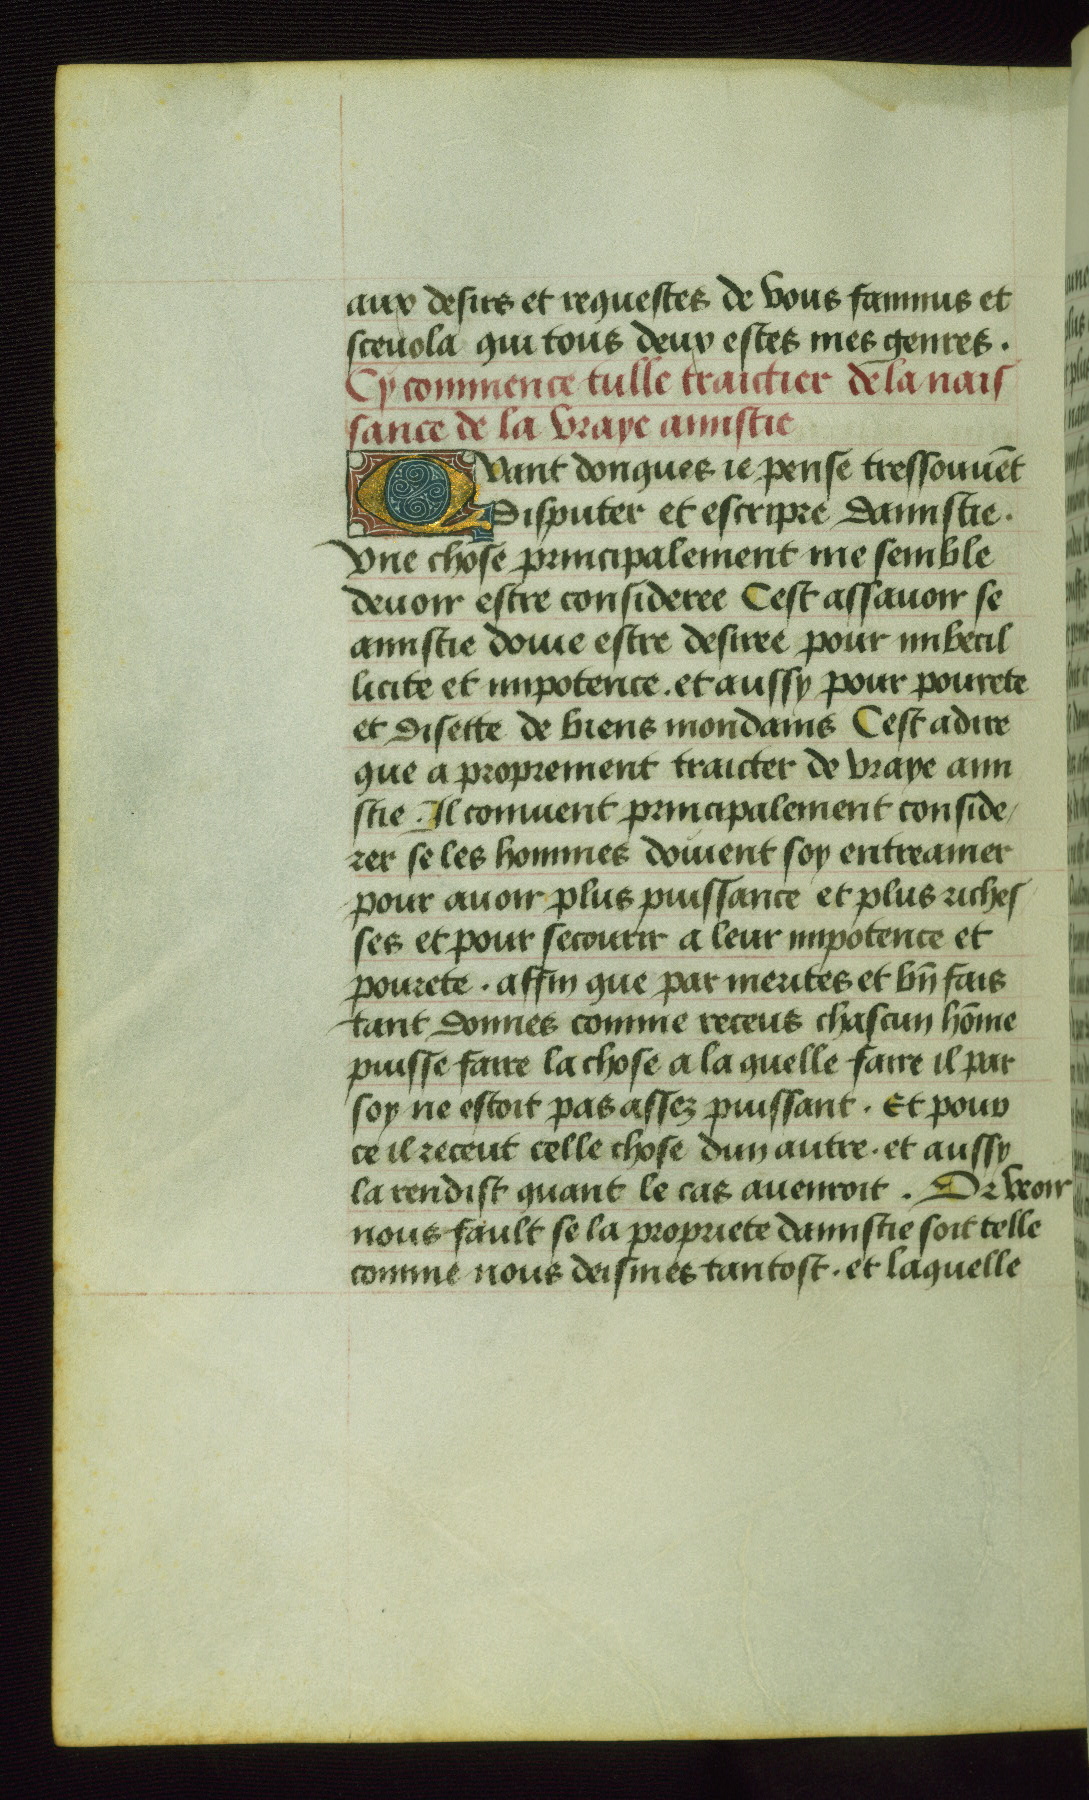 aux desirs et requestes de vous fannius et
sceuola qui tous deux estes mes genres.
Cy commence tulle traictier de la nais
sance de la vraye amistie
Quant donques ie pense tressouuēt
disputer et escripre damistie.
vne chose principalement me semble
deuoir estre consideree Cest assauoir se
amistie doiue estre desiree pour imbecil
licite et impotence. et aussy pour pourete
et disette de biens mondains Cest adire
que a proprement traicter de vraye ami
stie. Il conuient principalement conside/
rer se les hommes doiuent soy entreamer
pour auoir plus puissance et plus riches
ses et pour secourir a leur impotence et
pourete. affin que par merites et bn̄ fais
tant donnes comme receus chascun hōme
puisse faire la chose a la quelle faire il par
soy ne estoit pas assez puissant. Et pour
ce il receut celle chose dun autre. et aussy
la rendist quant le cas auenroit. Or veoir
nous fault se la propriete damistie soit telle
comme nous deismes tantost. et laquelle